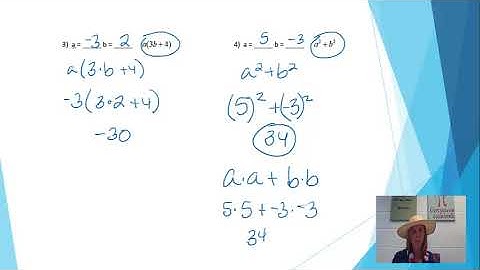 3) a = -3 b = 2 a(3b + 4)
a(3·b+4)
-3(3·2+4)
-30
4) a = 5 b = -3 a² + b²
a²+b²
(5)²+(-3)²
34
a·a + b·b
5·5+-3·-3
34